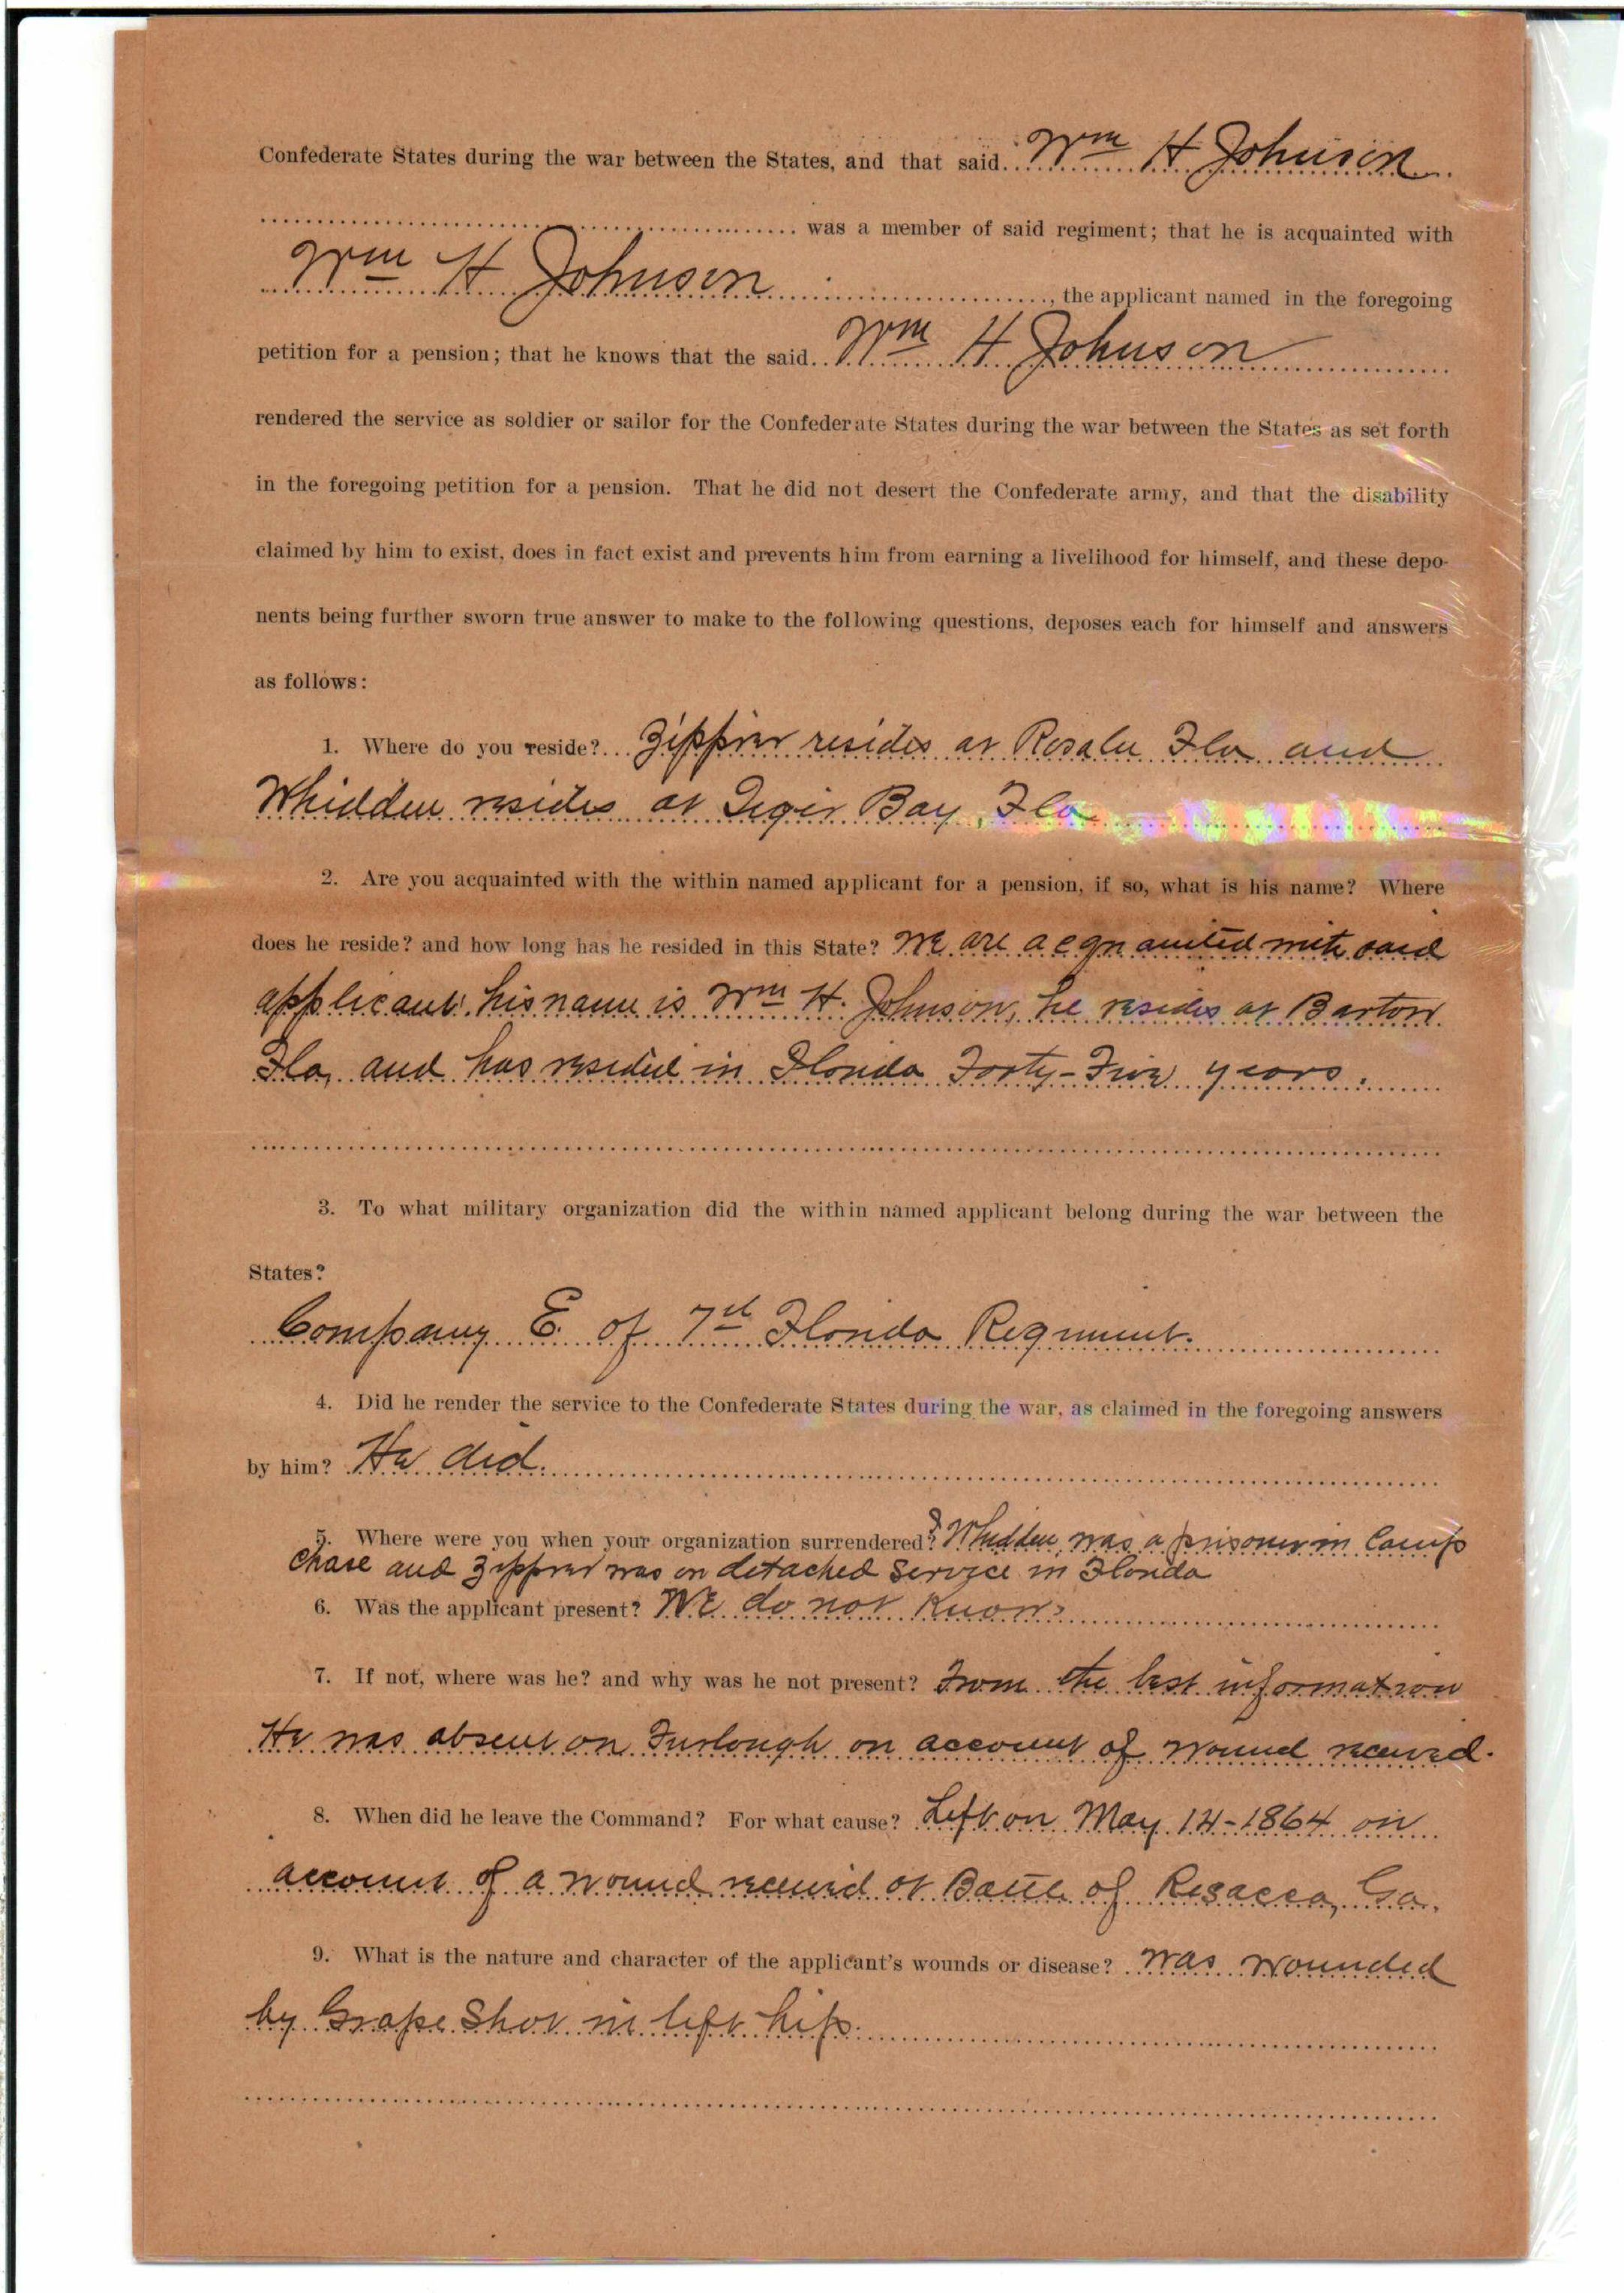 Confederate States during the war between the States, and that said Wm H Johnson
was a member of said regiment; that he is acquainted with
Wm H Johnson, the applicant named in the foregoing
petition for a pension; that he knows that the said Wm H Johnson
rendered the service as soldier or sailor for the Confederate States during the war between the States as set forth
in the foregoing petition for a pension. That he did not desert the Confederate army, and that the disability
claimed by him to exist, does in fact exist and prevents him from earning a livelihood for himself, and these depo-
nents being further sworn true answer to make to the following questions, deposes each for himself and answers
as follows:
1. Where do you reside? Zipprer resides at Rosalie Fla and
Whidden resides at Tiger Bay, Fla
2. Are you acquainted with the within named applicant for a pension, if so, what is his name? Where
does he reside? and how long has he resided in this State? We are acquainted with said
applicant. his name is Wm H. Johnson, he resides at Bartow
Fla, and has resided in Florida Forty-Five years.
3. To what military organization did the within named applicant belong during the war between the
States?
Company E. of 7th Florida Regiment.
4. Did he render the service to the Confederate States during the war, as claimed in the foregoing answers
by him? He did.
5. Where were you when your organization surrendered? Whidden was a prisoner in Camp
Chase and Zipprer was on detached Service in Florida
6. Was the applicant present? We do not Know.
7. If not, where was he? and why was he not present? From the best information
He was absent on Furlough on account of wound received.
8. When did he leave the Command? For what cause? Left on May 14-1864 on
account of a wound received at Battle of Resacca, Ga.
9. What is the nature and character of the applicant's wounds or disease? Was wounded
by Grape Shot in left hip.